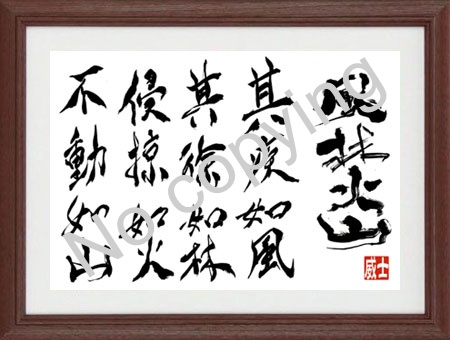 風林火山
其疾如風
其徐如林
侵掠如火
不動如山
威士
No copying